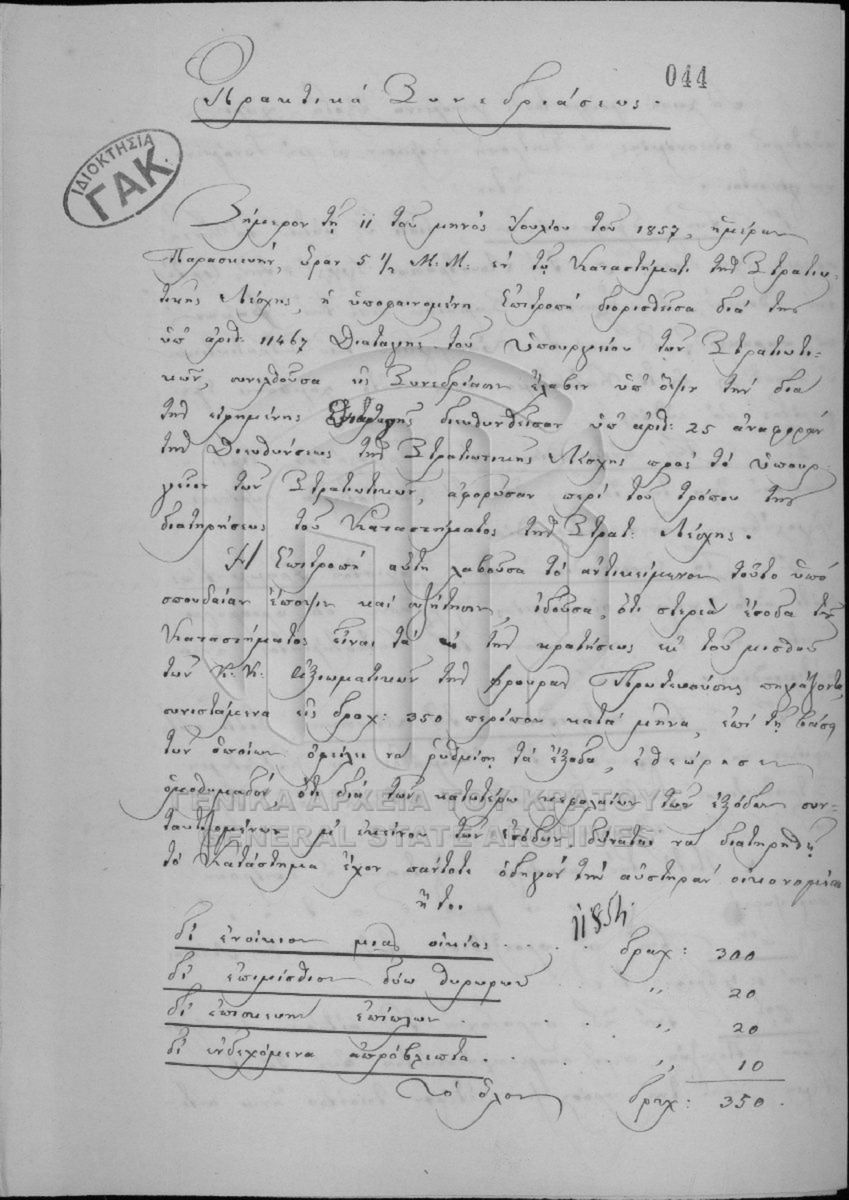 044
Πρακτικά Συνεδριάσεως.
ΙΔΙΟΚΤΗΣΙΑ
ΓΑΚ.
Σήμερον τῇ 11 τοῦ μηνός Ἰουλίου τοῦ 1857, ἡμέραν
Παρασκευήν, ὥραν 5 1/2 Μ.Μ. ἐν τῷ Καταστήματι τῆς Στρατιω-
τικῆς Λέσχης, ἡ ὑποφαινομένη Ἐπιτροπή διορισθεῖσα διά τῆς
ὑπ' ἀριθ: 11467 Διαταγῆς τοῦ Ὑπουργείου τῶν Στρατιωτι-
κῶν, συνελθοῦσα εἰς Συνεδρίασιν ἔλαβεν ὑπ' ὄψιν τήν διά
τῆς εἰρημένης διευθυνθεῖσαν ὑπ' ἀριθ: 25 ἀναφοράν
τῆς Διευθύνσεως τῆς Στρατιωτικῆς Λέσχης πρός τό Ὑπουρ-
γεῖον τῶν Στρατιωτικῶν, ἀφορῶσαν περί τοῦ τρόπου τῆς
διατηρήσεως τοῦ Καταστήματος τῆς Στρατ: Λέσχης.
Ἡ Ἐπιτροπή αὕτη λαβοῦσα τό ἀντικείμενον τοῦτο ὑπό
σπουδαίαν ἔποψιν καί συζήτησιν, ἰδοῦσα, ὅτι στερεά ἔσοδα τοῦ
Καταστήματος εἶναι τά ἐκ τῆς κρατήσεως ἐκ τοῦ μισθοῦ
τῶν Κ.Κ. Ἀξιωματικῶν τῆς φρουρᾶς Πρωτευούσης πηγάζοντα,
συνιστάμενα εἰς δραχ: 350 περίπου κατά μῆνα, ἐπί τῇ βάσει
τῶν ὁποίων ὀφείλει νά ῥυθμίσῃ τά ἔξοδα, ἐθεώρησεν
ὁμοθυμαδόν, ὅτι διά τῶν κατωτέρω κεφαλαίων τῶν ἐξόδων συν-
ταυτιζομένων μ' ἐκείνου τῶν ἐσόδων, δύναται νά διατηρηθῇ
τό Κατάστημα ἔχον πάντοτε ὁδηγόν τήν αὐστηράν οἰκονομίαν
ἤτοι
δι' ἐνοίκιον μιᾶς οἰκίας . . . . δραχ: 300
δι' ἐπιμίσθιον δύω θυρωρῶν . . " 20
δι' ἐπισκευήν ἐπίπλων . . . . " 20
δι' ἐνδεχόμενα ἀπρόβλεπτα . . . " 10
Τό ὅλον δραχ: 350.
ΓΕΝΙΚΑ ΑΡΧΕΙΑ ΤΟΥ ΚΡΑΤΟΥΣ
GENERAL STATE ARCHIVES